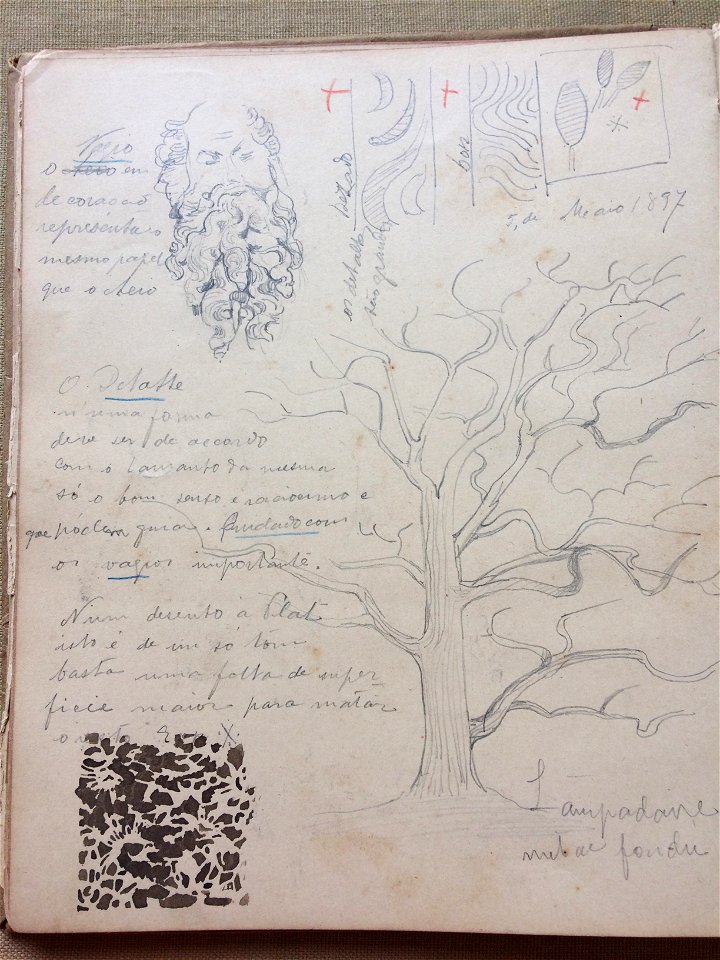 Vazio
o cheio em
de coração
representa o
mesmo papel
que o cheio
os detalhes
são grandes
bom
5, de Maio 1897
O Detalhe
n'uma forma
deve ser de accordo
com o tamanto da mesma
só o bom senso e raciocinio e
que pódem guiar. Cuidado com
os vazios importante.
N'um desenho à Plat
isto é de um só tom
basta uma folha de super
ficie maior para matar
o resto
Lampadaire
metal fondu